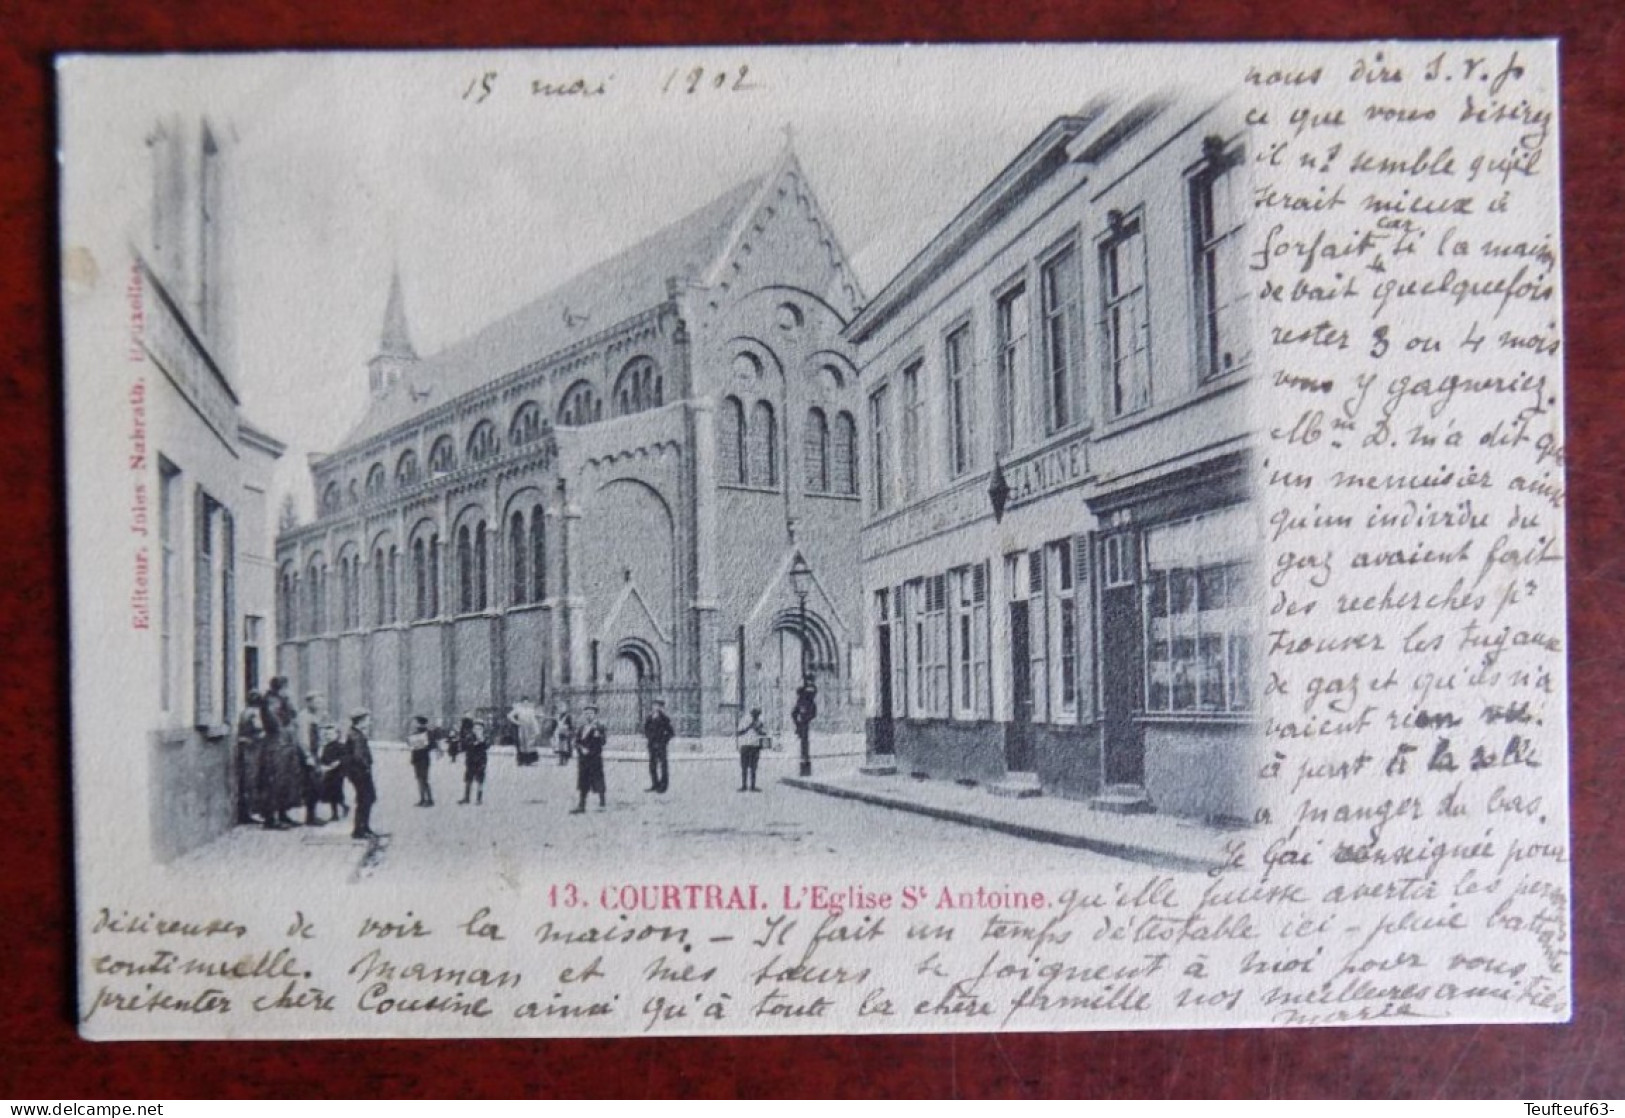 15 mai 1902
nous dire S.V.p
ce que vous désirez
il me semble qu'il
serait mieux à
forfait, car si la maison
devait quelquefois
rester 3 ou 4 mois
vous y gagneriez.
Mme D. m'a dit que
un menuisier ainsi
qu'un individu du
gaz avaient fait
des recherches pr
trouver les tuyaux
de gaz et qu'ils n'a
vaient rien vu.
à part à la salle
à manger du bas.
Je l'ai renseignée pour
qu'elle puisse avertir les personnes
désireuses de voir la maison. - Il fait un temps détestable ici - pluie battante
continuelle. Maman et mes sœurs se joignent à moi pour vous
présenter chère Cousine ainsi qu'à toute la chère famille nos meilleures amitiés
Marie
Editeur, Jules Nahrath, Bruxelles.
ESTAMINET
13. COURTRAI. L'Eglise St Antoine.
Teufteuf63-